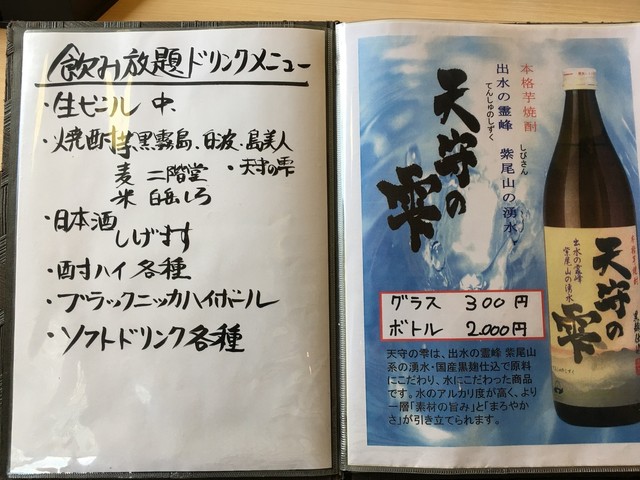 飲み放題ドリンクメニュー
・生ビール 中
・焼酎 芋 黒霧島、白波、島美人
・天守の雫
麦 二階堂
米 白岳しろ
・日本酒
しげます
・酎ハイ 各種
・ブラックニッカハイボール
・ソフトドリンク各種
本格芋焼酎
出水の霊峰 紫尾山の湧水
しびさん
てんしゅのしずく
天守の雫
グラス 300円
ボトル 2,000円
天守の雫は、出水の霊峰 紫尾山
系の湧水・国産黒麹仕込で原料
にこだわり、水にこだわった商品
です。水のアルカリ度が高く、より
一層「素材の旨み」と「まろやか
さ」が引き立てられます。
出水の霊峰
紫尾山の湧水
天守の雫